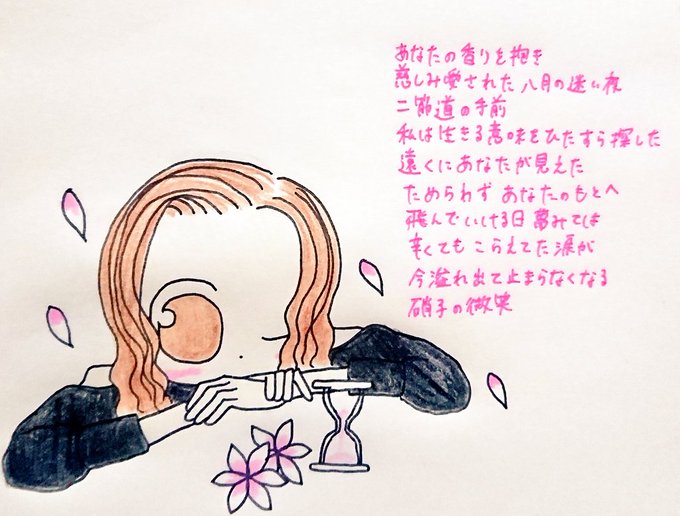 あなたの香りを抱き
慈しみ愛された八月の迷い夜
二筋道の手前
私は生きる意味をひたすら探した
遠くにあなたが見えた
ためらわず あなたのもとへ
飛んでいける日 夢みては
辛くても こらえてた涙が
今溢れ出て止まらなくなる
硝子の微笑